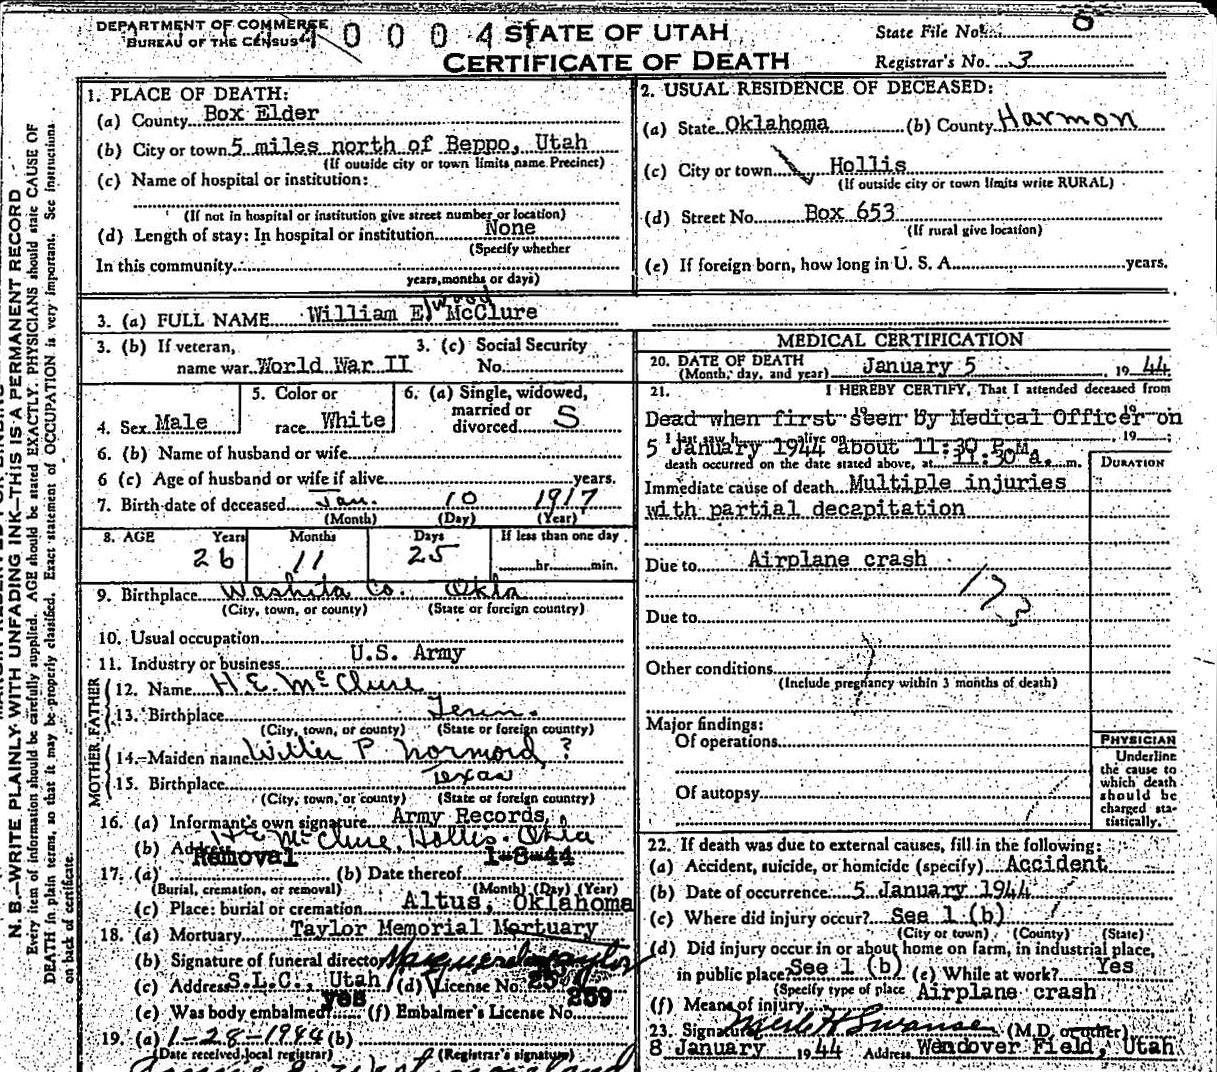 DEPARTMENT OF COMMERCE
BUREAU OF THE CENSUS
STATE OF UTAH
CERTIFICATE OF DEATH
State File No. 8
Registrar's No. 3
N. B.—WRITE PLAINLY WITH UNFADING INK—THIS IS A PERMANENT RECORD
Every item of information should be carefully supplied. AGE should be stated EXACTLY. PHYSICIANS should state CAUSE OF
DEATH in plain terms, so that it may be properly classified. Exact statement of OCCUPATION is very important. See instructions
on back of certificate.
1. PLACE OF DEATH:
(a) County Box Elder
(b) City or town 5 miles north of Beppo, Utah
(If outside city or town limits name Precinct)
(c) Name of hospital or institution:
(If not in hospital or institution give street number or location)
(d) Length of stay: In hospital or institution None
(Specify whether
In this community
years, months or days)
2. USUAL RESIDENCE OF DECEASED:
(a) State Oklahoma (b) County Harmon
(c) City or town Hollis
(If outside city or town limits write RURAL)
(d) Street No. Box 653
(If rural give location)
(e) If foreign born, how long in U. S. A. years.
3. (a) FULL NAME William Elwood McClure
3. (b) If veteran, name war World War II 3. (c) Social Security No.
4. Sex Male 5. Color or race White 6. (a) Single, widowed, married or divorced S
6. (b) Name of husband or wife
6 (c) Age of husband or wife if alive years.
7. Birth date of deceased Jan. 10 1917
(Month) (Day) (Year)
8. AGE Years Months Days If less than one day
26 11 25 hr. min.
9. Birthplace Washita Co. Okla
(City, town, or county) (State or foreign country)
10. Usual occupation
11. Industry or business U.S. Army
FATHER
12. Name H.E. McClure
13. Birthplace Tenn.
(City, town, or county) (State or foreign country)
MOTHER
14. Maiden name P Normord ?
15. Birthplace Texas
(City, town, or county) (State or foreign country)
16. (a) Informant's own signature Army Records,
(b) Address H.E. McClure, Hollis, Okla
17. (a) Removal (b) Date thereof 1-8-44
(Burial, cremation, or removal) (Month) (Day) (Year)
(c) Place: burial or cremation Altus, Oklahoma
18. (a) Mortuary Taylor Memorial Mortuary
(b) Signature of funeral director Taylor
(c) Address S.L.C. Utah (d) License No.
(e) Was body embalmed yes (f) Embalmer's License No. 259
19. (a) 1-28-1944 (b)
(Date received local registrar) (Registrar's signature)
MEDICAL CERTIFICATION
20. DATE OF DEATH January 5, 19 44
(Month, day, and year)
21. I HEREBY CERTIFY, That I attended deceased from
Dead when first seen by Medical Officer on
5 January 1944 about 11:30 P.M.
death occurred on the date stated above, at 11:30 A. m.
DURATION
Immediate cause of death Multiple injuries
with partial decapitation
Due to Airplane crash
173
Due to
Other conditions
(Include pregnancy within 3 months of death)
Major findings:
Of operations
Of autopsy
PHYSICIAN
Underline
the cause to
which death
should be
charged sta-
tistically.
22. If death was due to external causes, fill in the following:
(a) Accident, suicide, or homicide (specify) Accident
(b) Date of occurrence 5 January 1944
(c) Where did injury occur? See 1 (b)
(City or town) (County) (State)
(d) Did injury occur in or about home on farm, in industrial place,
in public place? See 1 (b) (e) While at work? Yes
(Specify type of place
(f) Means of injury Airplane crash
23. Signature Merle H Swanse (M.D. or other)
8 January 19 44 Address Wendover Field, Utah